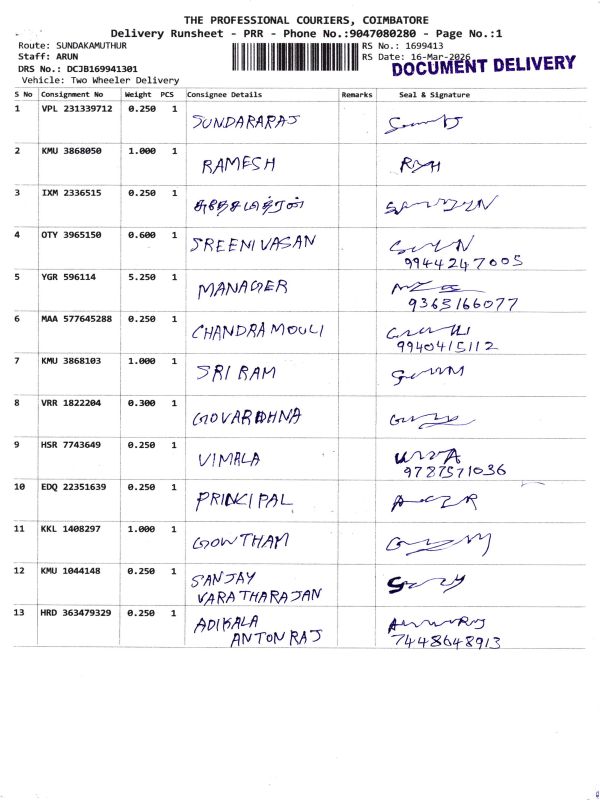 THE PROFESSIONAL COURIERS, COIMBATORE
Delivery Runsheet - PRR - Phone No.:9047080280 - Page No.:1
Route: SUNDAKAMUTHUR
RS No.: 1699413
Staff: ARUN
RS Date: 16-Mar-2026
DRS No.: DCJB169941301
DOCUMENT DELIVERY
Vehicle: Two Wheeler Delivery
S No Consignment No Weight PCS Consignee Details Remarks Seal & Signature
1 VPL 231339712 0.250 1 SUNDARARAJ
2 KMU 3868050 1.000 1 RAMESH
3 IXM 2336515 0.250 1
4 OTY 3965150 0.600 1 SREENIVASAN
9944247005
5 YGR 596114 5.250 1 MANAGER
9363166077
6 MAA 577645288 0.250 1 CHANDRAMOULI
9940415112
7 KMU 3868103 1.000 1 SRI RAM
8 VRR 1822204 0.300 1 GOVARDHNA
9 HSR 7743649 0.250 1 VIMALA
9787571036
10 EDQ 22351639 0.250 1 PRINCIPAL
11 KKL 1408297 1.000 1 GOWTHAM
12 KMU 1044148 0.250 1 SANJAY
VARATHARAJAN
13 HRD 363479329 0.250 1 ADIKALA
ANTON RAJ
7448648913